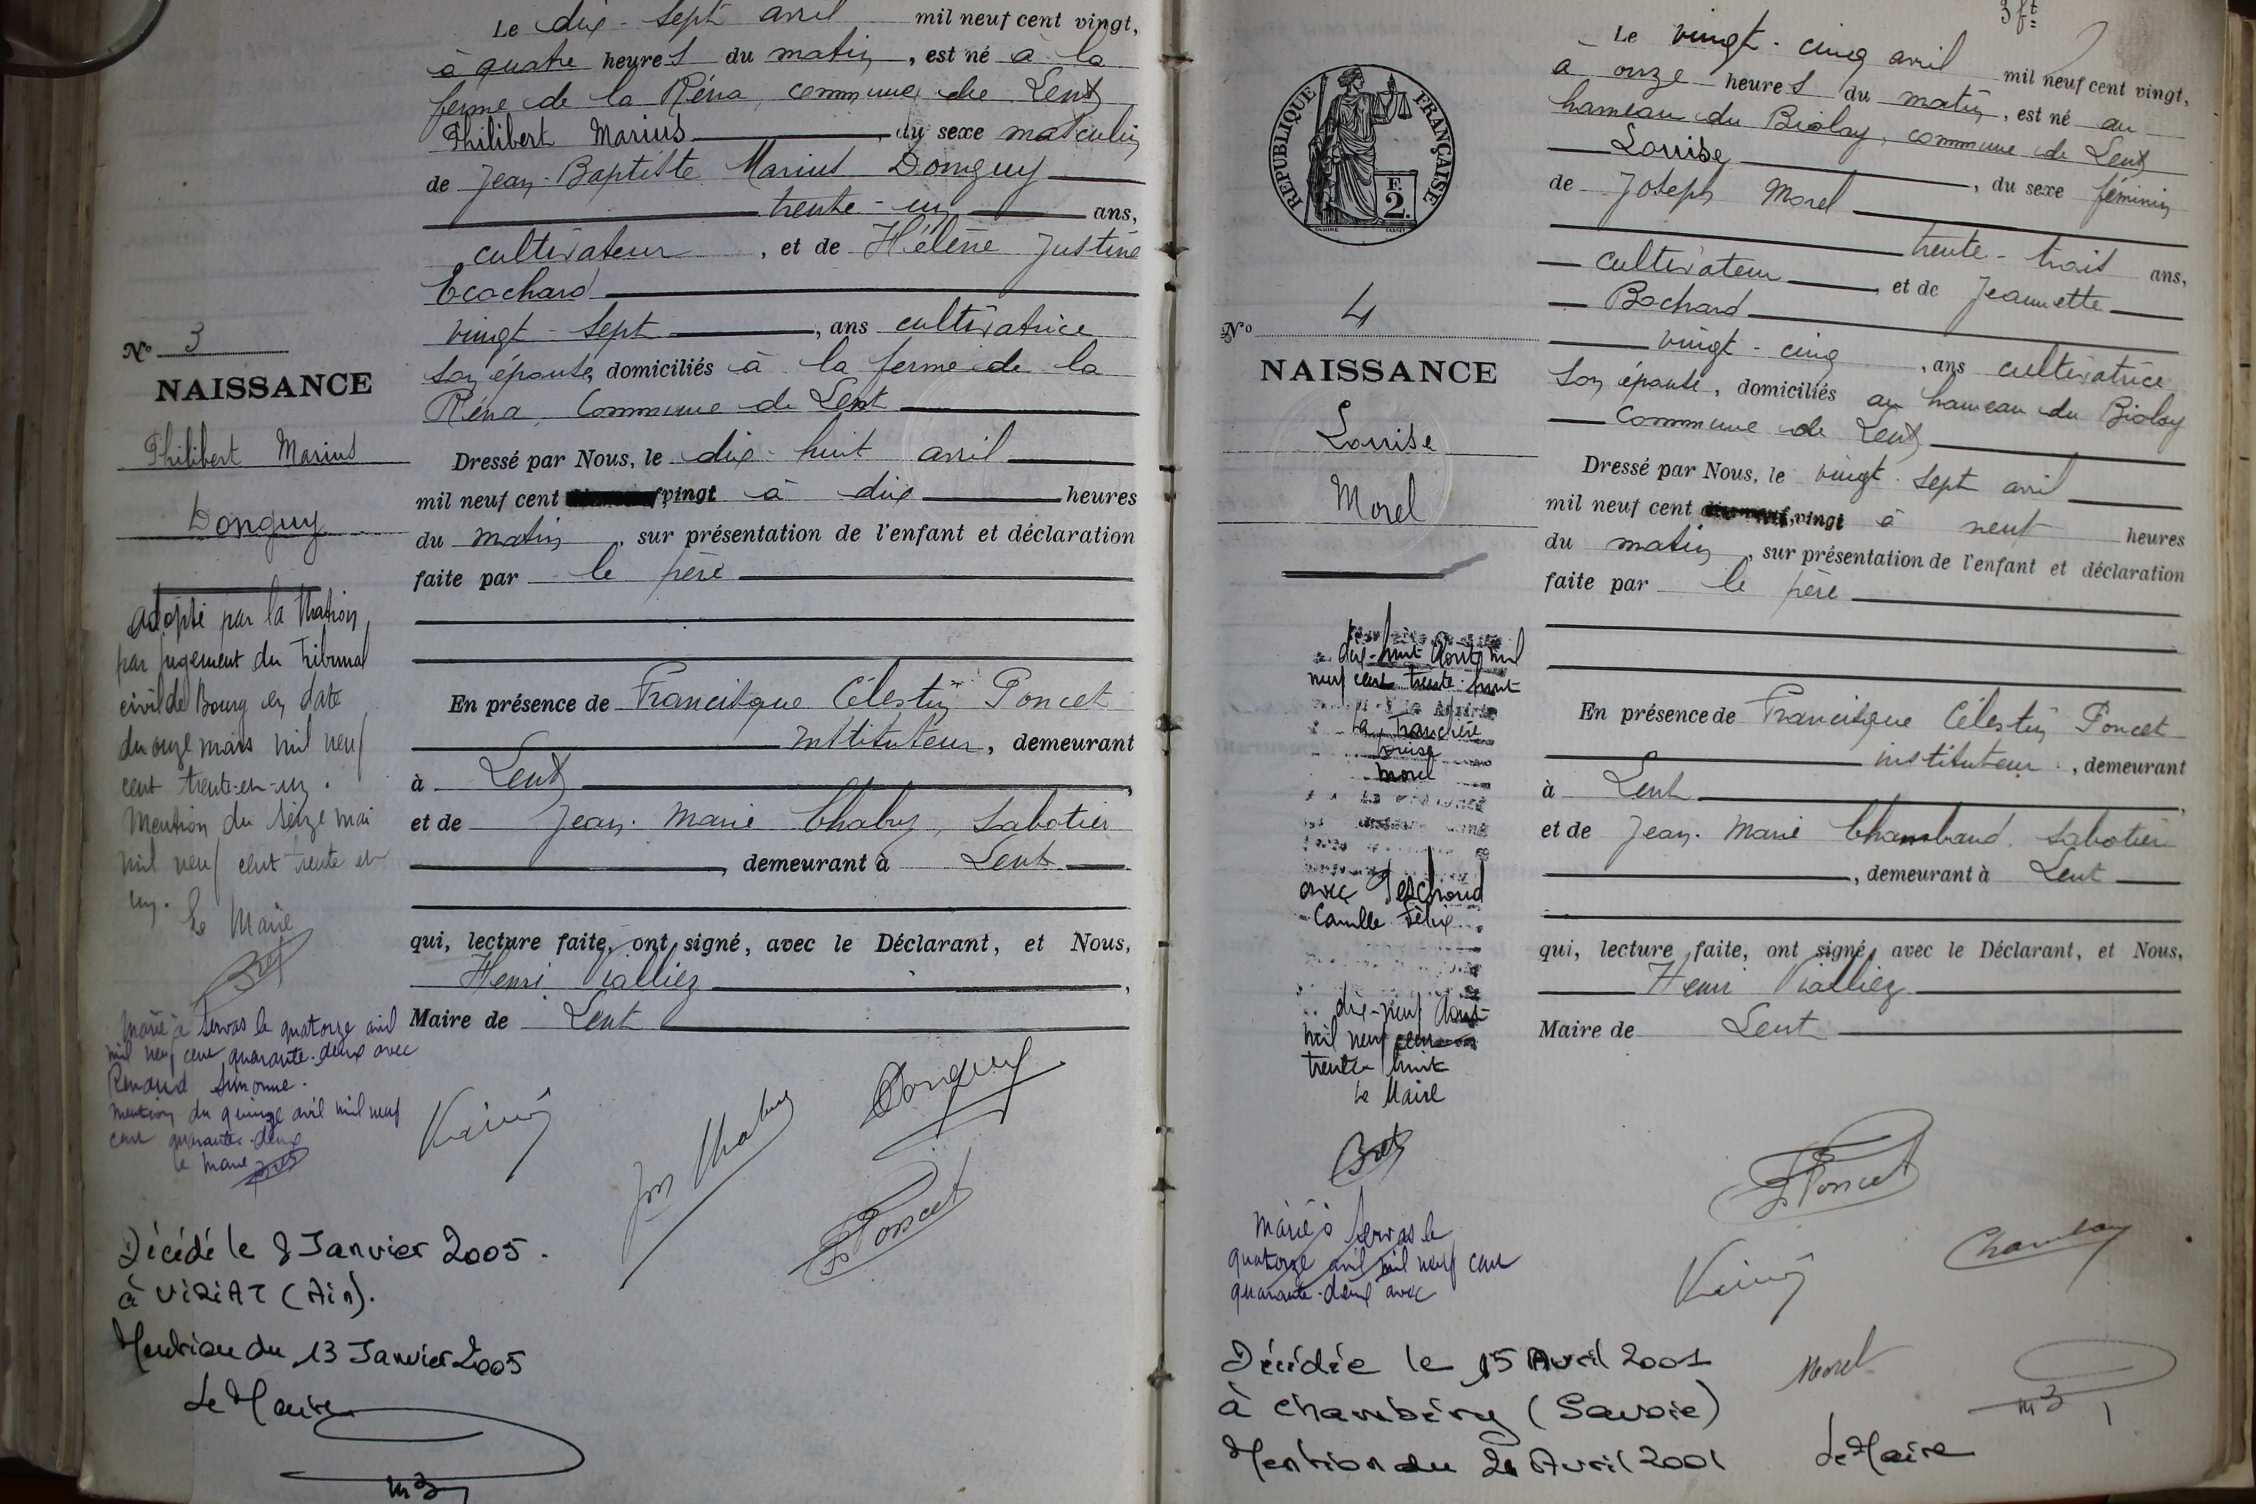 Le dix-sept avril mil neuf cent vingt,
à quatre heures du matin, est né à la
ferme de la Réna, commune de Lent
Philibert Marius, du sexe masculin
de Jean-Baptiste Marius Donguy
trente-un ans,
cultivateur, et de Hélène Justine
Ecochard
vingt-sept, ans cultivatrice
son épouse, domiciliés à la ferme de la
Réna, Commune de Lent
Dressé par Nous, le dix-huit avril
mil neuf cent vingt à dix heures
du matin, sur présentation de l'enfant et déclaration
faite par le père
En présence de Francisque Célestin Poncet
instituteur, demeurant
à Lent,
et de Jean-Marie Chabry, sabotier
, demeurant à Lent
qui, lecture faite, ont signé, avec le Déclarant, et Nous,
Henri Vialliez,
Maire de Lent
Donguy
Poncet
No 3
NAISSANCE
Philibert Marius
Donguy
Adopté par la Nation,
par jugement du Tribunal
civil de Bourg en date
du onze mars mil neuf
cent trente-et-un.
Mention du seize mai
mil neuf cent trente et
un.
Le Maire
Bret
Marié à Servas le quatorze avril
mil neuf cent quarante-deux avec
Renaud Simonne.
Mention du quinze avril mil neuf
cent quarante-deux
le Maire
Décédé le 8 Janvier 2005.
à VIRIAT (Ain).
Mention du 13 Janvier 2005
Le Maire
3 ft
Le vingt-cinq avril mil neuf cent vingt,
à onze heures du matin, est né au
hameau du Biolay, commune de Lent
Louise, du sexe féminin
de Joseph Morel
trente-trois ans,
cultivateur, et de Jeannette
Bochard
vingt-cinq, ans cultivatrice
son épouse, domiciliés au hameau du Biolay
Commune de Lent
Dressé par Nous, le vingt-sept avril
mil neuf cent vingt à neuf heures
du matin, sur présentation de l'enfant et déclaration
faite par le père
En présence de Francisque Célestin Poncet
instituteur, demeurant
à Lent,
et de Jean-Marie Chambaud, sabotier
, demeurant à Lent
qui, lecture faite, ont signé, avec le Déclarant, et Nous,
Henri Vialliez
Maire de Lent
Poncet
Morel
RÉPUBLIQUE FRANÇAISE
F.
2.
No 4
NAISSANCE
Louise
Morel
dix-huit Août mil
neuf cent trente-huit
La Tranclière
Louise
Morel
avec
Camille Félix
dix-neuf Août
mil neuf cent
trente huit
Le Maire
Bret
Marié à Servas le
quatorze avril mil neuf cent
quarante-deux avec
Décédée le 15 Avril 2001
à Chambéry (Savoie)
Mention du 20 Avril 2001 Le Maire